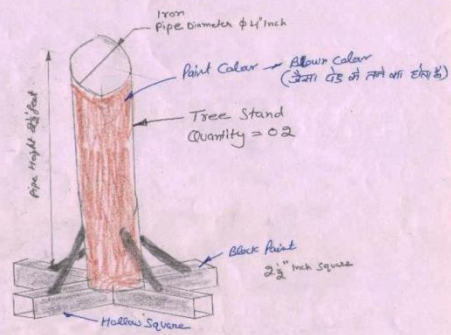 Iron
Pipe Diameter φ 4" Inch
Paint Color → Blown Color
(जैसा पेड़ के तने का होता है)
Tree Stand
Quantity = 02
Pipe Height feet
Black Paint
2½" Inch Square
Hollow Square